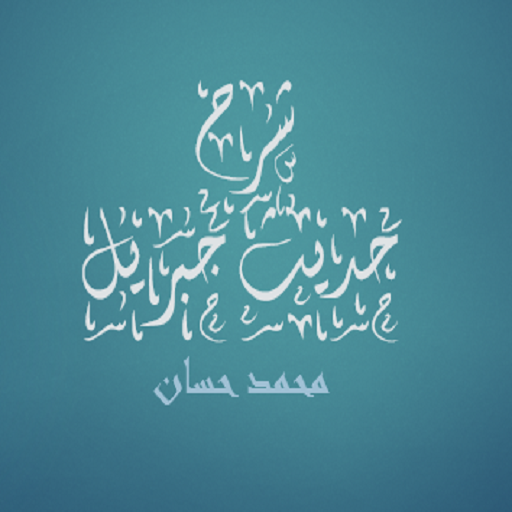 شرح
حديث جبريل
محمد حسان